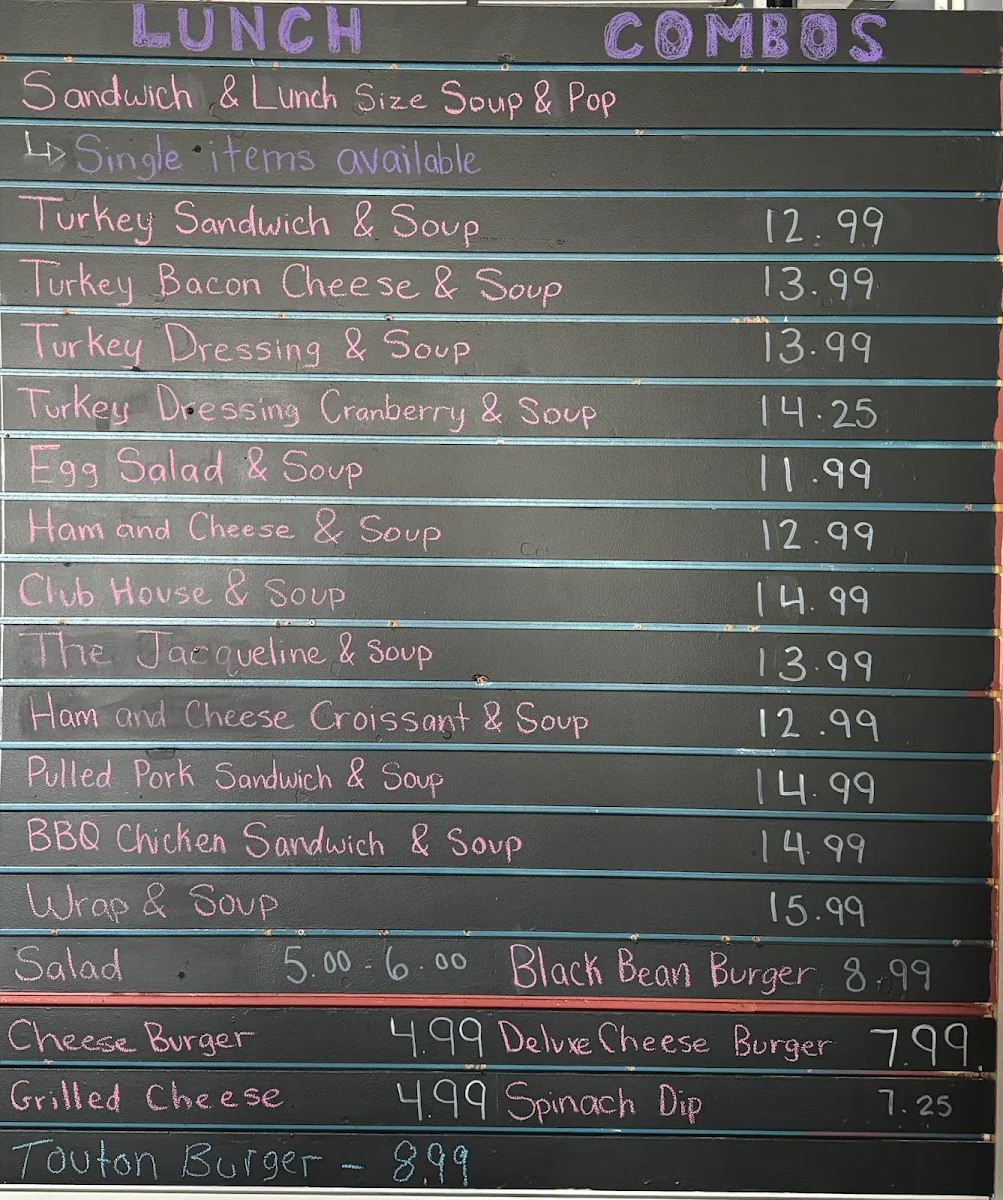 LUNCH COMBOS
Sandwich & Lunch Size Soup & Pop
↳ Single items available
Turkey Sandwich & Soup 12.99
Turkey Bacon Cheese & Soup 13.99
Turkey Dressing & Soup 13.99
Turkey Dressing Cranberry & Soup 14.25
Egg Salad & Soup 11.99
Ham and Cheese & Soup 12.99
Club House & Soup 14.99
The Jacqueline & Soup 13.99
Ham and Cheese Croissant & Soup 12.99
Pulled Pork Sandwich & Soup 14.99
BBQ Chicken Sandwich & Soup 14.99
Wrap & Soup 15.99
Salad 5.00 - 6.00 Black Bean Burger 8.99
Cheese Burger 4.99 Deluxe Cheese Burger 7.99
Grilled Cheese 4.99 Spinach Dip 7.25
Touton Burger - 8.99